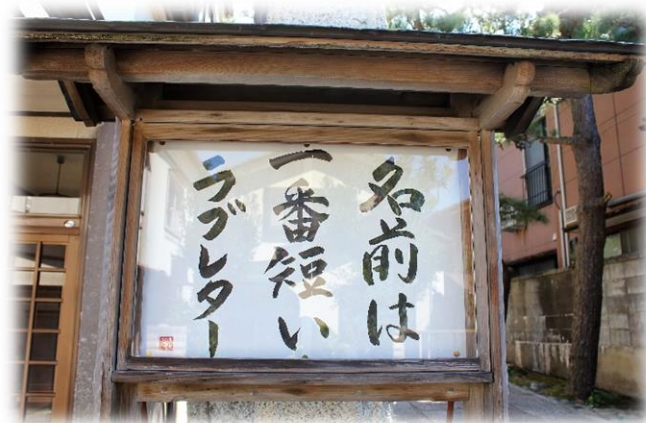 名前は
一番短い
ラブレター